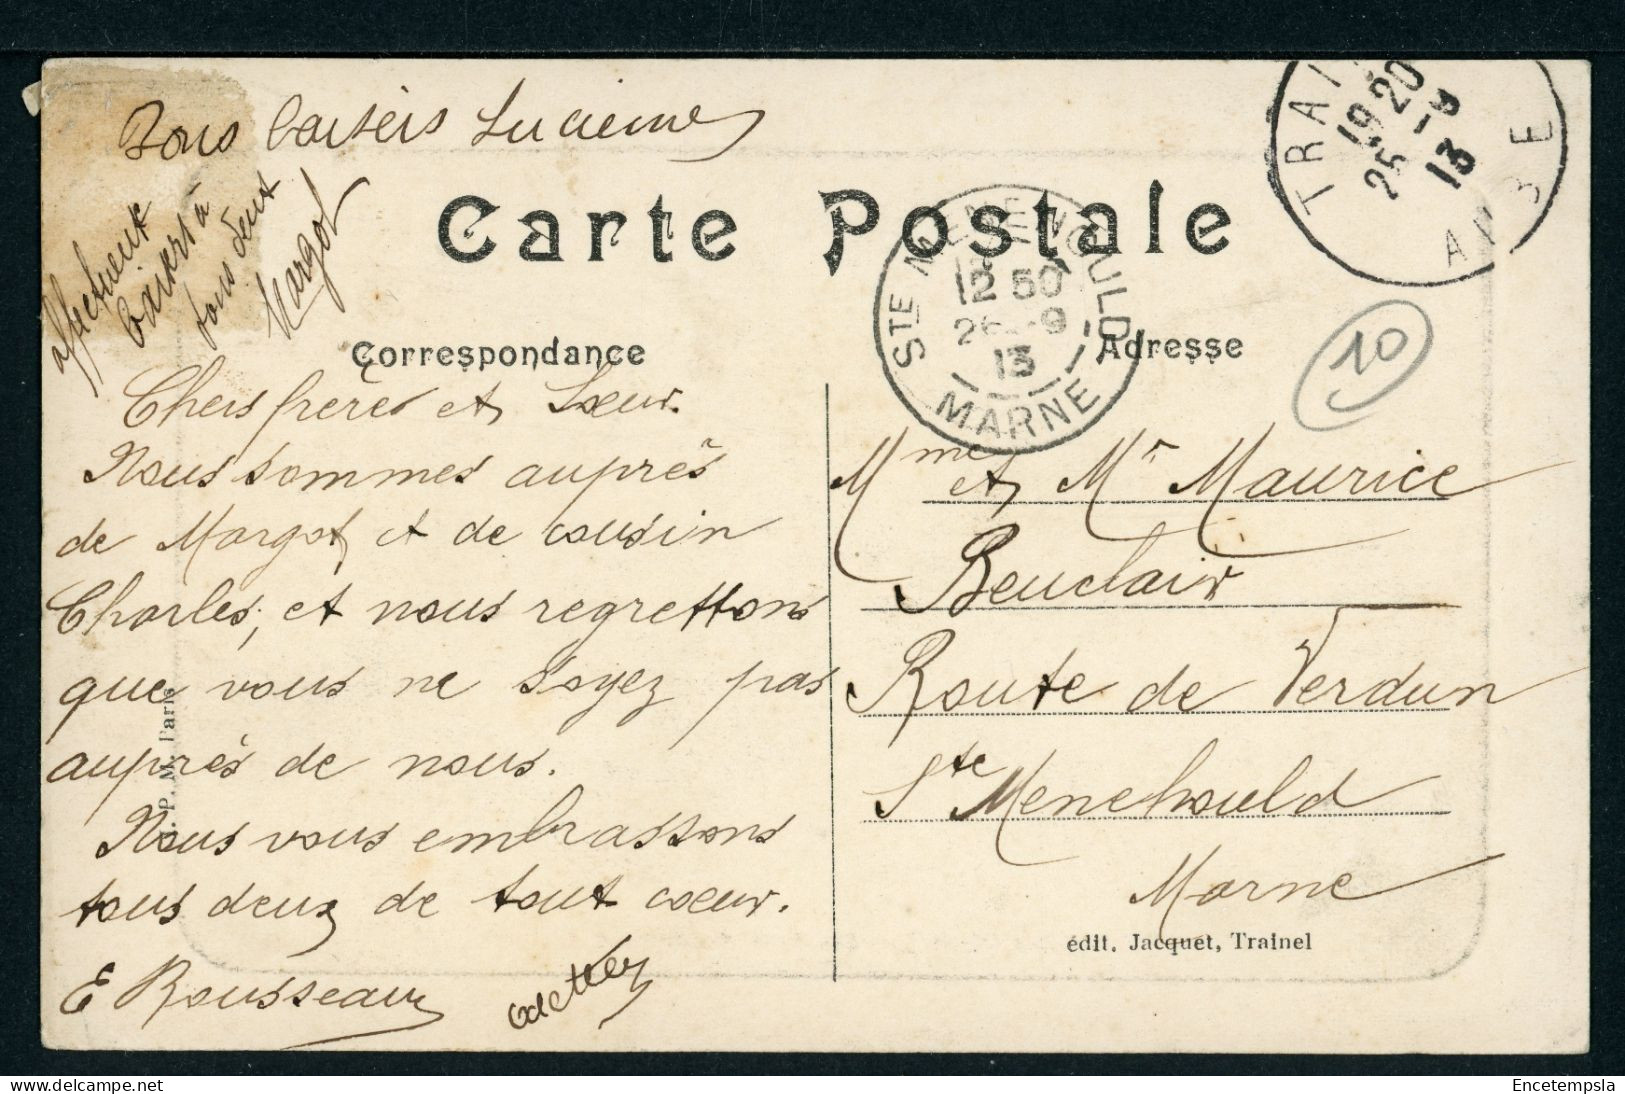 Bons baisers Lucienne
affectueux
baisers à
tous deux
Margot
Carte Postale
Correspondance
Adresse
TRAI
19 20
25 -9
13
AUBE
STE MENEHOULD
12 50
26 -9
13
MARNE
10
Chers frère et Sœur.
Nous sommes auprès
de Margot et de cousin
Charles, et nous regrettons
que vous ne soyez pas
auprès de nous.
Nous vous embrassons
tous deux de tout cœur.
E Rousseau
Odette
Mme et Mr Maurice
Beuclair
Route de Verdun
Ste Menehould
Marne
édit. Jacquet, Trainel
P. M. Paris
Encetempsla